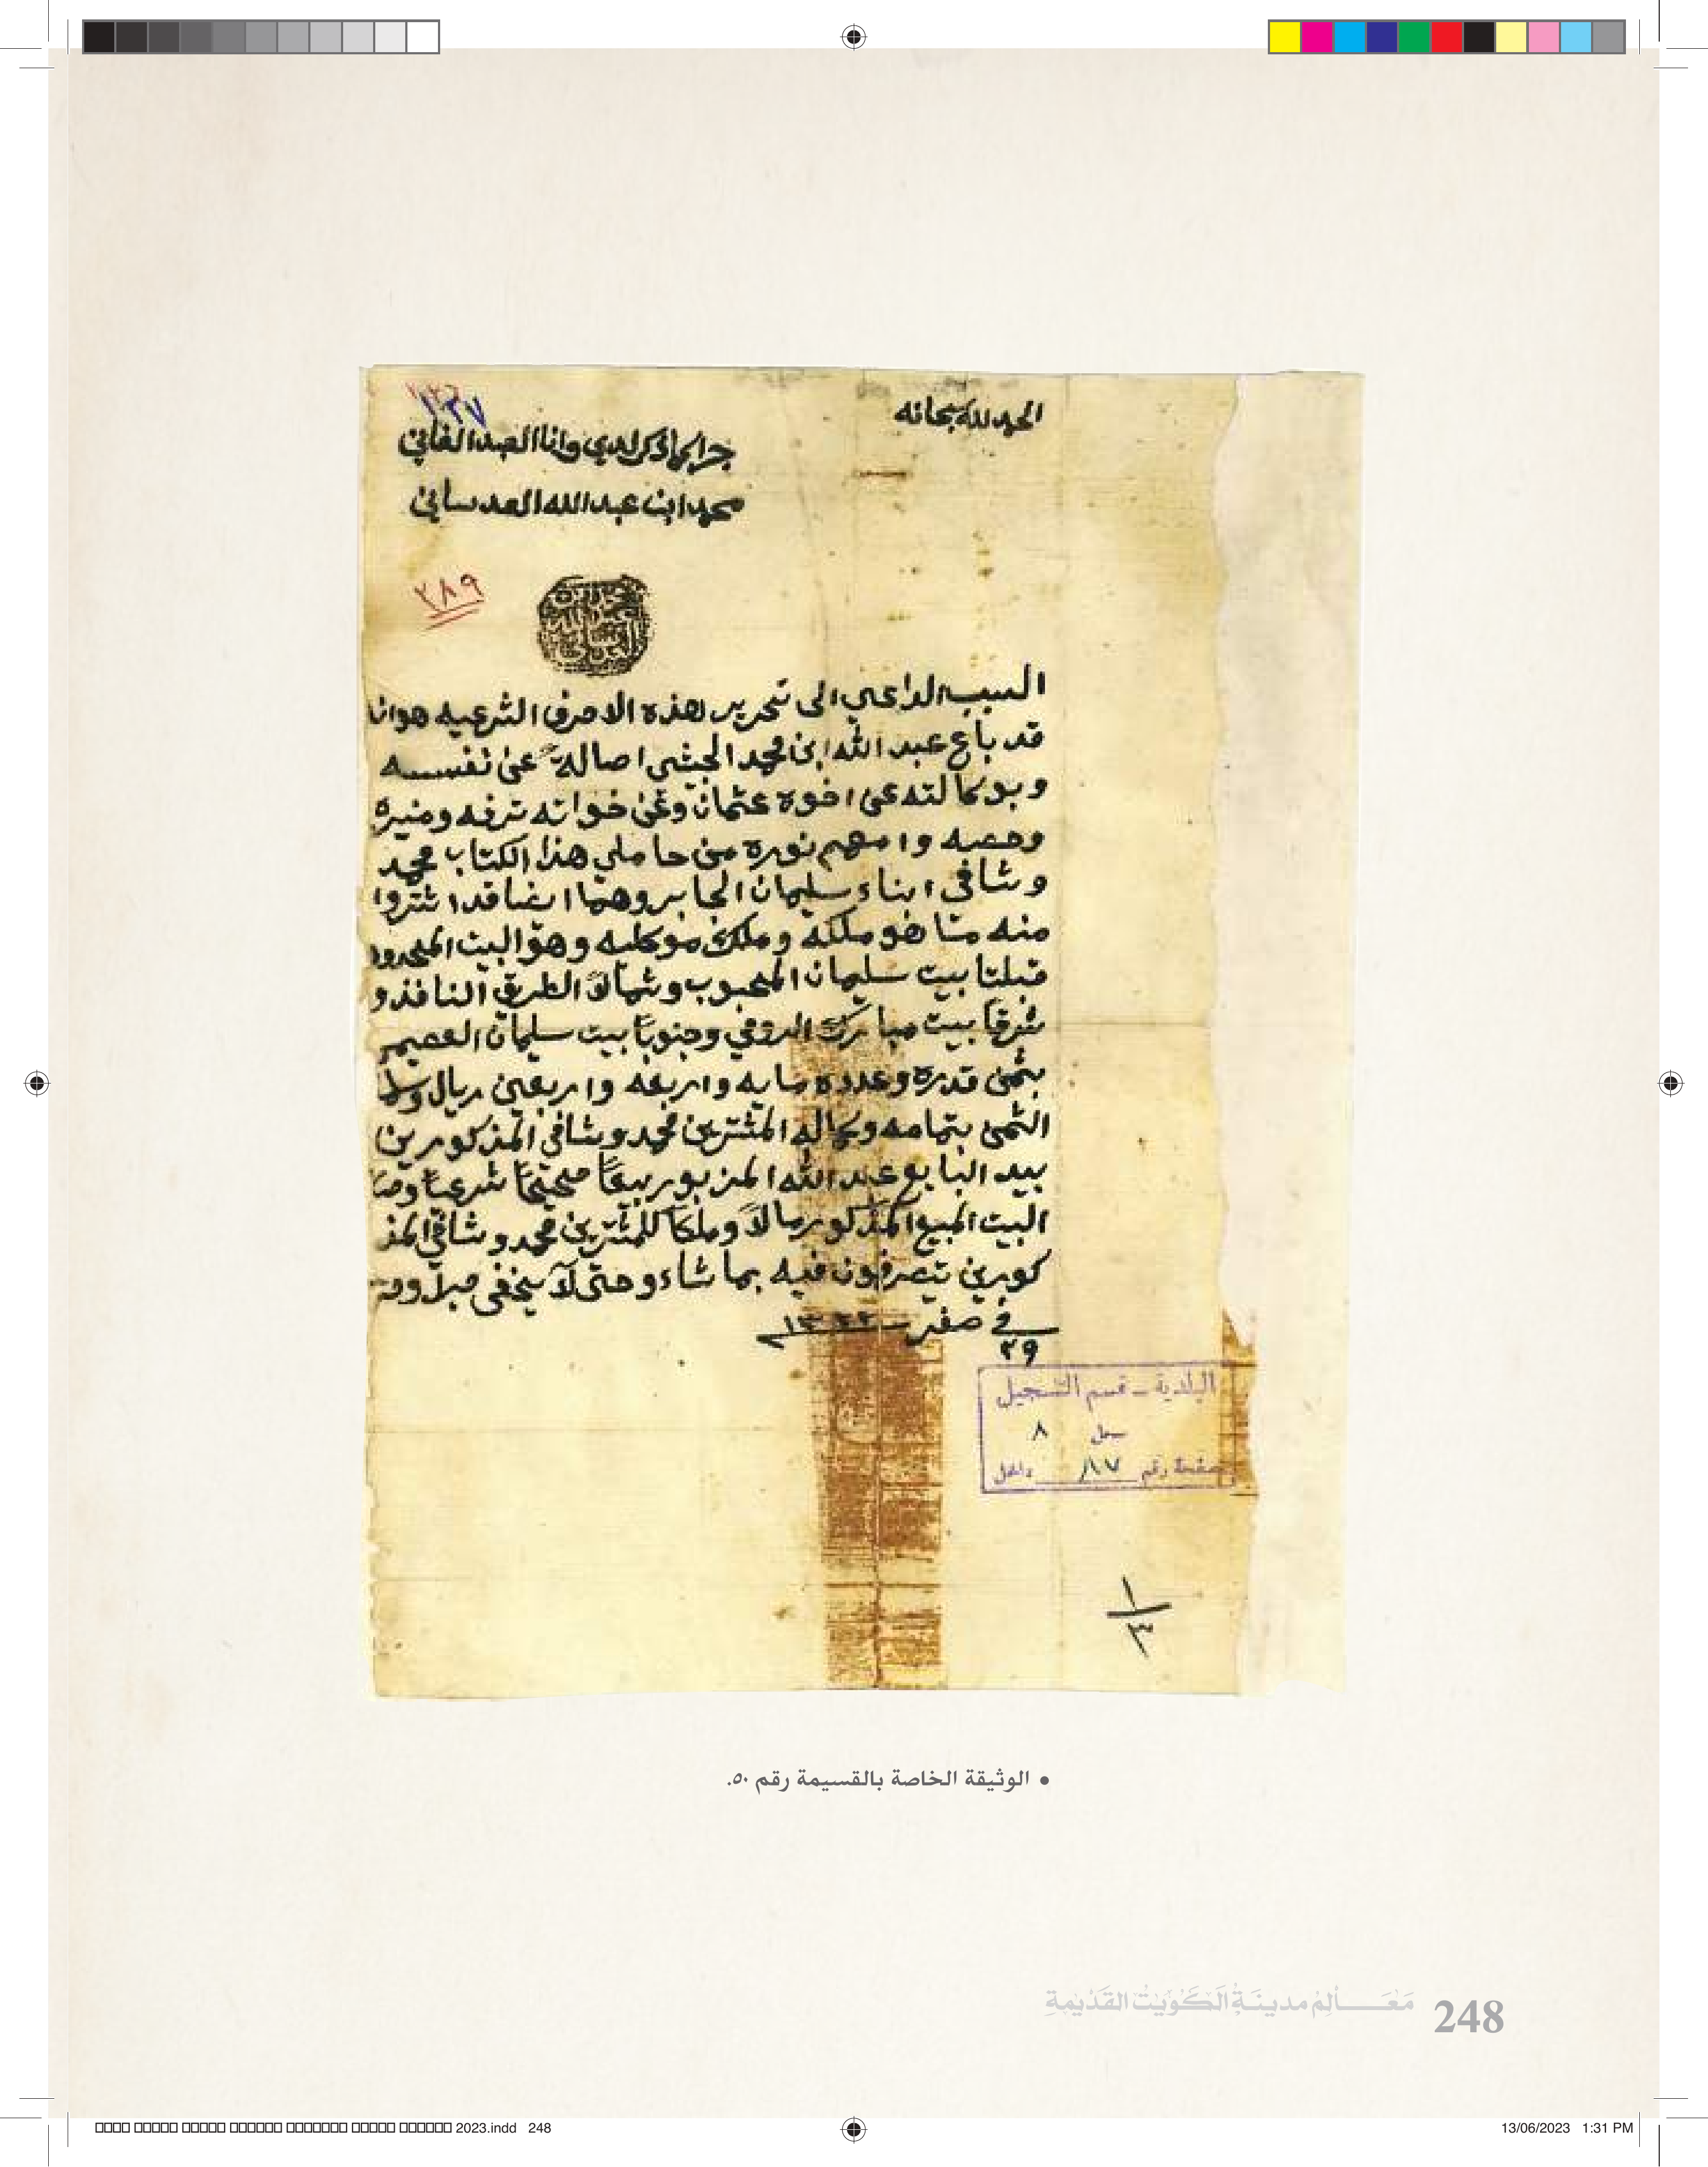 الحمد لله سبحانه
١٣٧
جرا كما ذكر لدي وانا العبد الفاني
محمد ابن عبد الله العدساني
٣٨٩
السبب الداعي الى تحرير هذه الاحرف الشرعيه هو انا
قد باع عبد الله ابن محمد اصالةً عن نفسه
وبوكالته عن اخوه عثمان وعن خواته ترفه ومنيره
وحصه وامهم نوره من حاملي هذا الكتاب محمد
وشافي ابناء سليمان الجابر وهما ايضا قد اشتروا
منه ما هو ملكه وملك موكليه وهو البيت المحدود
قبلتا بيت سليمان المحبوب وشمالاً الطريق النافذ و
شرقاً بيت مبارك الرومي وجنوباً بيت سليمان
بثمن قدره وعدده مايه واربعه واربعين ريال
الثمن بتمامه وكماله المشترين محمد وشافي المذكورين
بيد البايع عبد الله المزبور بيعاً صحيحاً شرعياً
البيت المبيع المذكور مالاً وملكاً للمشترين محمد وشافي المذ
كورين يتصرفون فيه بما شاء وحتى لا يخفى
في ٢٩ صفر ١٣٢٢
البلدية - قسم التسجيل
سجل ٨
صفحة رقم ٨٧
١/٣
• الوثيقة الخاصة بالقسيمة رقم ٥٠.
مَعَـــالِمُ مدينَـةِ الكُوَيْت القَدْيمَةِ 248
2023.indd 248
13/06/2023 1:31 PM